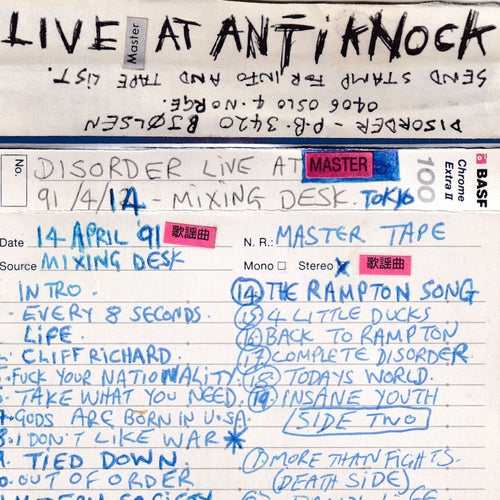 LIVE Master AT ANTi KNOCK
SEND STAMP FOR INFO AND TAPE LIST.
0406 OSLO 4. NORGE.
DISORDER - P.B. 3420 BJØLSEN
No. DISORDER LiVE AT MASTER 100 Chrome Extra II BASF
91/4/ 14 - MIXING DESK. TOKYO
Date 14 APRIL '91 歌謡曲 N. R.: MASTER TAPE
Source MIXING DESK Mono Stereo X 歌謡曲
INTRO. 14 THE RAMPTON SONG
EVERY 8 SECONDS. 15 4 LITTLE DUCKS
LiFE. 16 BACK TO RAMPTON
CLIFF RICHARD. 17 COMPLETE DISORDER.
FUCK YOUR NATIONALITY. 18 TODAYS WORLD.
TAKE WHAT YOU NEED. 19 INSANE YOUTH
7. GODS ARE BORN IN U.S.A. SIDE TWO
8. I DON'T LIKE WAR*
9. TIED DOWN. 1 MORE THAN FIGHTS.
0. OUT OF ORDER (DEATH SIDE)
MODERN SOCIETY